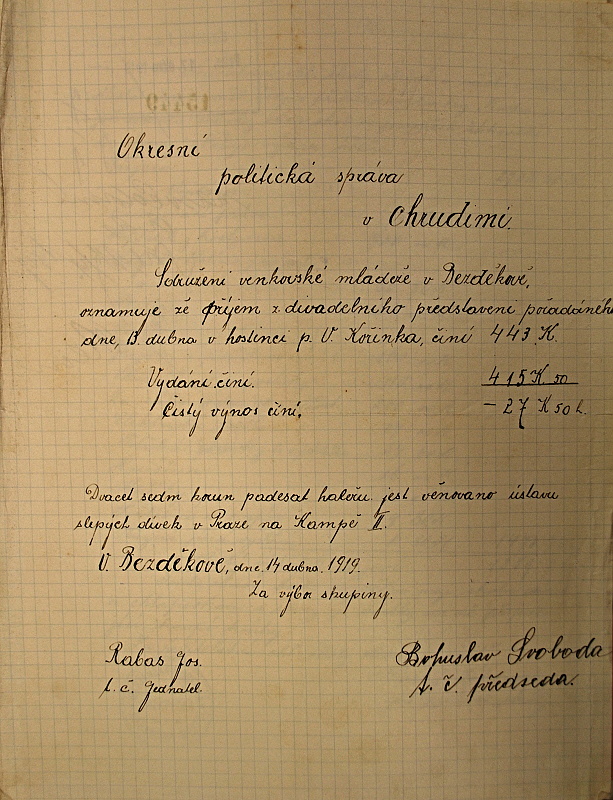 Okresní
politická správa
v Chrudimi.
Sdruženi venkovské mládeže v Bezděkově,
oznamuje že příjem z divadelního představeni pořádáného
dne, 13. dubna v hostinci p. V. Kořinka, činí 443 K.
Vydání činí. 415 K 50
Čistý výnos činí. – 27 K 50 h.
Dvacet sedm korun padesat haleřu jest věnovano ústavu
slepých dívek v Praze na Kampě II.
V. Bezděkově, dne. 14 dubna. 1919.
Za výbor skupiny.
Rabas Jos. Bohuslav Svoboda
t. č. Jednatel. t. č. předseda.